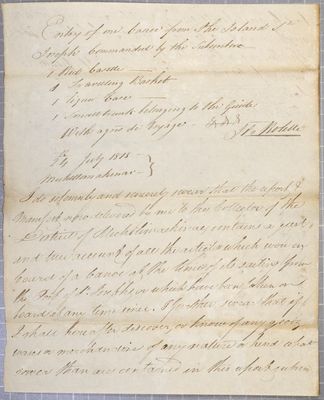 Entry of one Canoe from the Island St
Joseph Commanded by the Subscriber
1 Bed
1 Traveling Basket
1 Liquor Case
1 Small trunk belonging to the Guide
With agrés de Voyage
Jh Rolette
4 July 1818
Michilimakinac
I do solemnly and sincerely swear that the report &
Manifest now delivered by me to the Collector of the
District of Michilimackinac, contains a just,
and true account of all the articles which were on
board of a canoe at the time of its sailing from
the Port of St Joseph, or which have been taken on
board at any time since. I further swear that if
I shall hereafter discover, or know of any goods
wares or merchandise of any nature or kind what
soever than are contained in this report, where